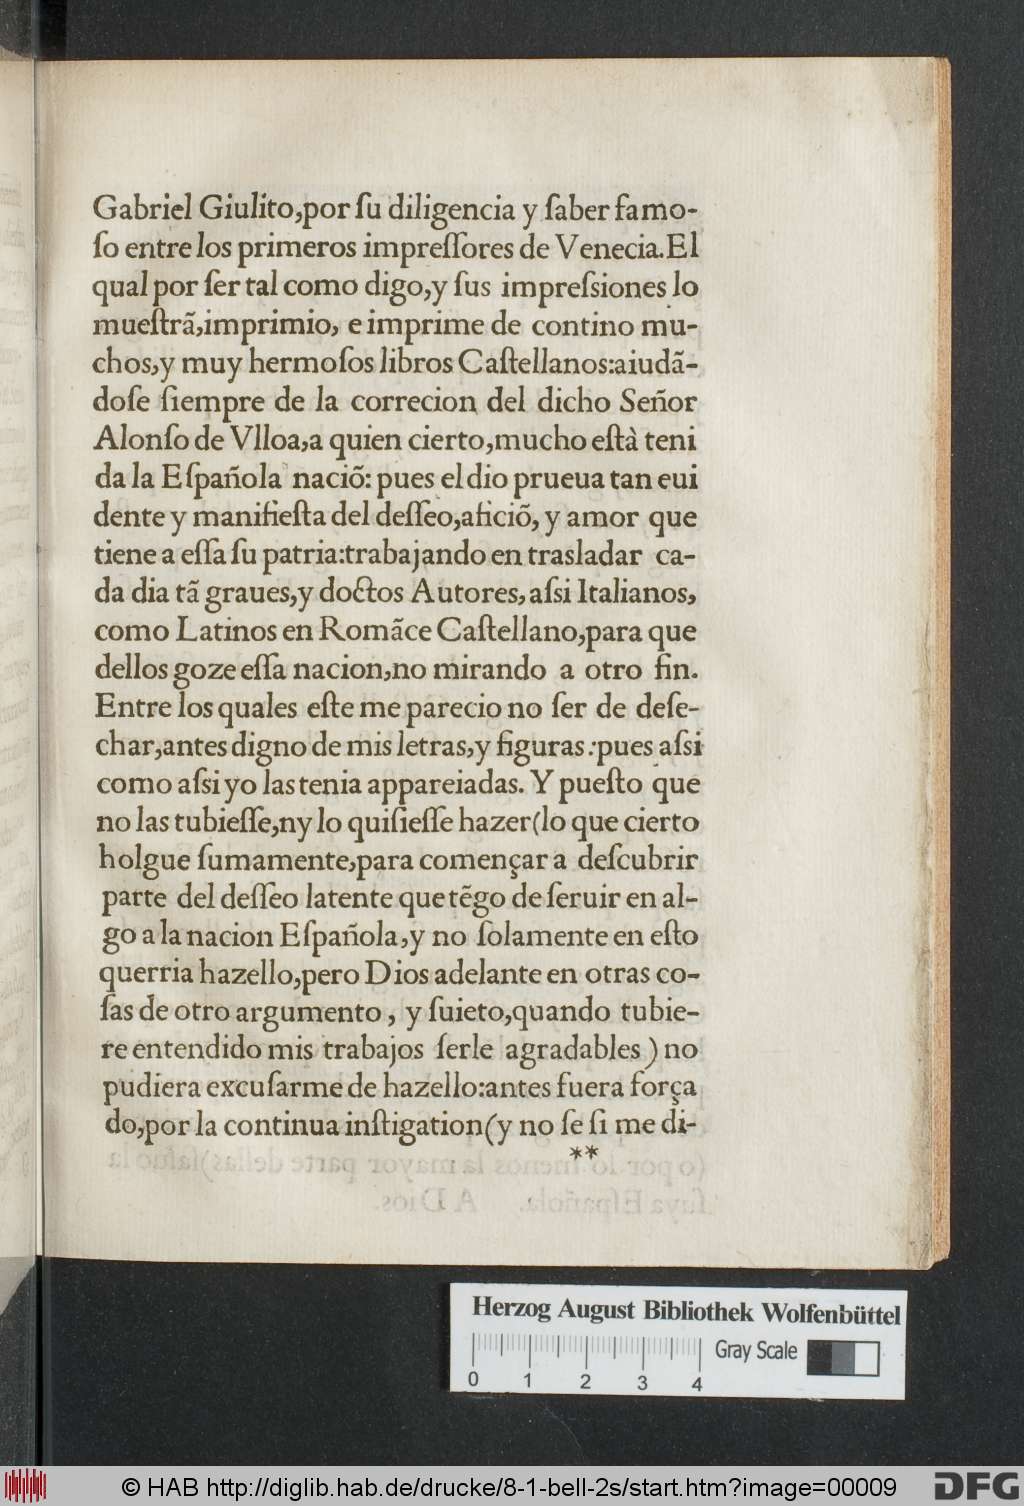 Gabriel Giulito,por ſu diligencia y ſaber famo-
ſo entre los primeros impreſſores de Venecia.El
qual por ſer tal como digo,y ſus impreſsiones lo
mueſtrã,imprimio, e imprime de contino mu-
chos,y muy hermoſos libros Caſtellanos:aiudã-
doſe ſiempre de la correcion del dicho Señor
Alonſo de Vlloa,a quien cierto,mucho eſtà teni
da la Eſpañola naciõ: pues el dio prueua tan eui
dente y manifieſta del deſſeo,aficiõ, y amor que
tiene a eſſa ſu patria:trabajando en trasladar ca-
da dia tã graues,y doctos Autores, aſsi Italianos,
como Latinos en Romãce Caſtellano,para que
dellos goze eſſa nacion,no mirando a otro fin.
Entre los quales eſte me parecio no ſer de deſe-
char,antes digno de mis letras,y figuras:pues aſsi
como aſsi yo las tenia appareiadas. Y pueſto que
no las tubieſſe,ny lo quiſieſſe hazer(lo que cierto
holgue ſumamente,para començar a deſcubrir
parte del deſſeo latente que tẽgo de ſeruir en al-
go a la nacion Eſpañola,y no ſolamente en eſto
querria hazello,pero Dios adelante en otras co-
ſas de otro argumento, y ſuieto,quando tubie-
re entendido mis trabajos ſerle agradables) no
pudiera excuſarme de hazello:antes fuera força
do,por la continua inſtigation(y no ſe ſi me di-
**
Herzog August Bibliothek Wolfenbüttel
Gray Scale
0 1 2 3 4
© HAB http://diglib.hab.de/drucke/8-1-bell-2s/start.htm?image=00009
DFG